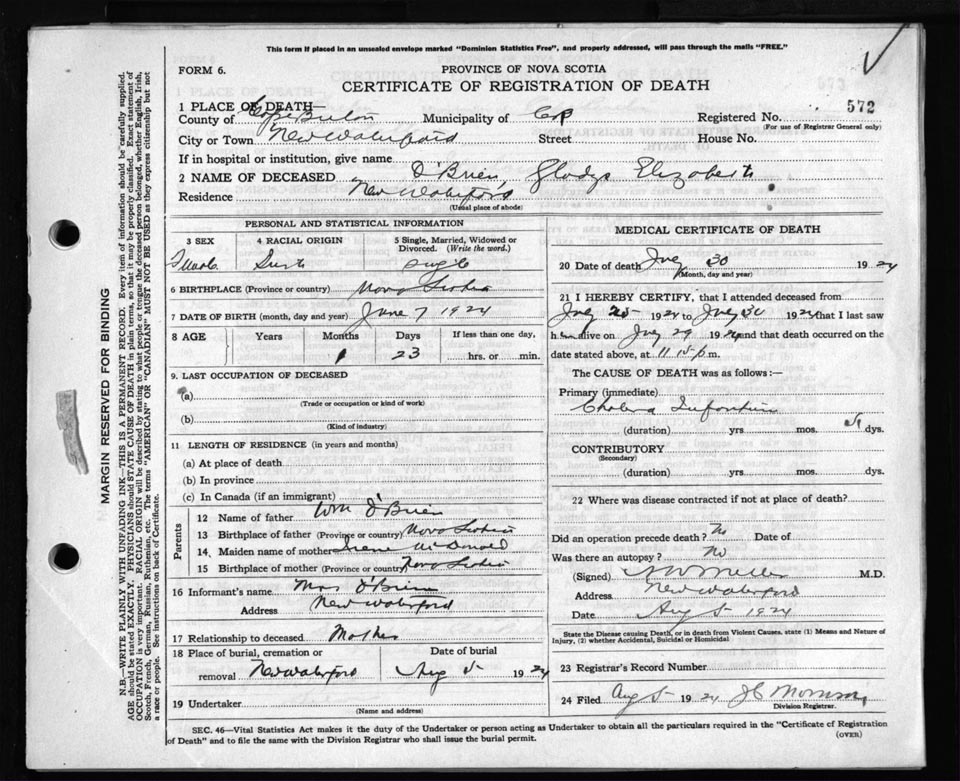 This form if placed in an unsealed envelope marked "Dominion Statistics Free", and properly addressed, will pass through the mails "FREE."
FORM 6.
PROVINCE OF NOVA SCOTIA
CERTIFICATE OF REGISTRATION OF DEATH
1 PLACE OF DEATH—
County of Cape Breton Municipality of CB Registered No. 572
(For use of Registrar General only)
City or Town New Waterford Street House No.
If in hospital or institution, give name
2 NAME OF DECEASED O'Brien, Gladys Elizabeth
Residence New Waterford
(Usual place of abode)
PERSONAL AND STATISTICAL INFORMATION
3 SEX 4 RACIAL ORIGIN 5 Single, Married, Widowed or Divorced. (Write the word.)
Female single
6 BIRTHPLACE (Province or country) Nova Scotia
7 DATE OF BIRTH (month, day and year) June 7 1924
8 AGE Years Months Days If less than one day,
1 23 hrs. or min.
9. LAST OCCUPATION OF DECEASED
(a)
(Trade or occupation or kind of work)
(b)
(Kind of industry)
11 LENGTH OF RESIDENCE (in years and months)
(a) At place of death
(b) In province
(c) In Canada (if an immigrant)
Parents
12 Name of father Wm O'Brien
13 Birthplace of father (Province or country) Nova Scotia
14. Maiden name of mother Irene McDonald
15 Birthplace of mother (Province or country) Nova Scotia
16 Informant's name Mrs O'Brien
Address New Waterford
17 Relationship to deceased Mother
18 Place of burial, cremation or removal New Waterford Date of burial Aug 5 1924
19 Undertaker
(Name and address)
MEDICAL CERTIFICATE OF DEATH
20 Date of death July 30 1924
(Month, day and year)
21 I HEREBY CERTIFY, that I attended deceased from
July 25 1924 to July 30 1924 that I last saw
h er alive on July 29 1924 and that death occurred on the
date stated above, at 11.15 p.m.
The CAUSE OF DEATH was as follows:—
Primary (immediate)
Cholera Infantum
(duration) yrs mos. dys.
CONTRIBUTORY
(Secondary)
(duration) yrs. mos. dys.
22 Where was disease contracted if not at place of death?
Did an operation precede death? No Date of
Was there an autopsy? No
(Signed) M.D.
Address New Waterford
Date Aug 5 1924
State the Disease causing Death, or in death from Violent Causes, state (1) Means and Nature of
Injury, (2) whether Accidental, Suicidal or Homicidal
23 Registrar's Record Number
24 Filed Aug 5 1924 J C Morrison
Division Registrar.
SEC. 46—Vital Statistics Act makes it the duty of the Undertaker or person acting as Undertaker to obtain all the particulars required in the "Certificate of Registration
of Death" and to file the same with the Division Registrar who shall issue the burial permit.
(OVER)
MARGIN RESERVED FOR BINDING
N.B.—WRITE PLAINLY WITH UNFADING INK—THIS IS A PERMANENT RECORD. Every item of information should be carefully supplied.
AGE should be stated EXACTLY. PHYSICIANS should STATE CAUSE OF DEATH in plain terms, so that it may be properly classified. Exact statement of
OCCUPATION is very important. RACIAL ORIGIN will be described by stating to what people or tongue the deceased person belonged, whether English, Irish,
Scotch, French, German, Russian, Ruthenian, etc. The terms "AMERICAN" OR "CANADIAN" MUST NOT BE USED as they express citizenship but not
a race or people. See instructions on back of Certificate.